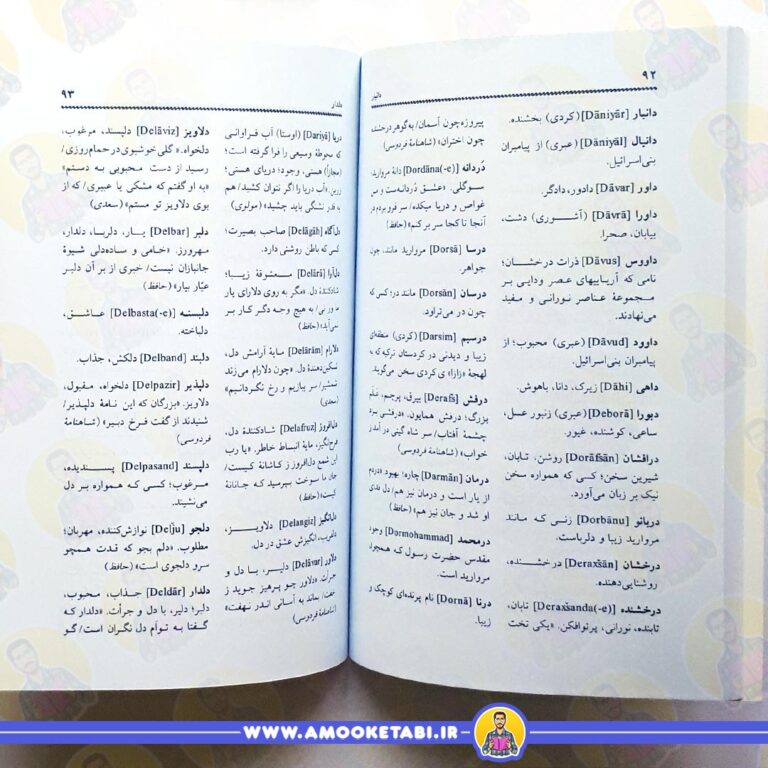 ۹۲
دانیار
دانیار [Dāniyār](کردی) بخشنده.
دانیال [Dāniyāl] (عبری) از پیامبران
بنی‌اسرائیل.
داور [Dāvar] دادور، دادگر.
داورا [Dāvrā] (آشوری) دشت،
بیابان، صحرا.
داووس [Dāvus] ذرات درخشان؛
نامی که آریاییهای عصر ودایی بر
مجموعهٔ عناصر نورانی و مفید
می‌نهادند.
داوود [Dāvud] (عبری) محبوب؛ از
پیامبران بنی‌اسرائیل.
داهی [Dāhi] زیرک، دانا، باهوش.
دبورا [Deborā](عبری) زنبور عسل،
ساعی، کوشنده، غیور.
درافشان [Dorāfšān] روشن، تابان،
شیرین سخن؛ کسی که همواره سخن
نیک بر زبان می‌آورد.
دربانو [Dorbānu] زنی که مانند
مروارید زیبا و دلرباست.
درخشان [Deraxšān] درخشنده،
روشنایی‌دهنده.
درخشنده [Deraxšanda(-e)] تابان،
تابنده، نورانی، پرتوافکن. «یکی تخت
پیروزه چون آسمان/ به گوهر درخشنده
چون اختران» (شاهنامهٔ فردوسی)
دُردانه [Dordāna(-e)] دانهٔ مروارید،
سوگلی. «عشق دُردانه‌ست و من
غواص و دریا میکده/ سر فرو بردم در
آنجا تا کجا سر بر کنم» (حافظ)
درسا [Dorsā] مروارید مانند، چون
جواهر.
درسان [Dorsān] مانند در؛ کسی که
چون در می‌تراود.
درسیم [Darsim] (کردی) منطقه‌ای
زیبا و دیدنی در کردستان ترکیه که به
لهجهٔ «زازا»ی کردی سخن می‌گویند.
درفش [Derafš] بیرق، پرچم، عَلَم
بزرگ؛ درفش همایون. «درفشی برد
چشمهٔ آفتاب/ سر شاه گیتی در آمد ز
خواب» (شاهنامهٔ فردوسی)
درمان [Darmān] چاره؛ بهبود «دردم
از یار است و درمان نیز هم/ دل فدای
او شد و جان نیز هم» (حافظ)
درمحمد [Dormohammad] وجود
مقدس حضرت رسول که همچون
مروارید است.
درنا [Dornā] نام پرنده‌ای کوچک و
زیبا.
۹۳
دلدار
دریا [Dariyā] (اوستا) آب فراوانی
که محوطهٔ وسیعی را فرا گرفته است؛
(مجازاً) هستی، وجود؛ دریای هستی؛
زرین. «آب دریا را اگر نتوان کشید/ هم
به قدر تشنگی باید چشید» (مولوی)
دل‌آگاه [Delāgāh] صاحب بصیرت؛
کسی که باطن روشنی دارد.
دل‌آرا [Delārā] معشوقهٔ زیبا؛
شادکنندهٔ دل. «مگر به روی دلارای یار
ما ور نی/ به هیچ وجه دگر کار بر
نمی‌آید» (حافظ)
دلارام [Delārām] مایهٔ آرامش دل،
تسکین‌دهندهٔ دل. «چون دلارام می‌زند
شمشیر/ سر ببازیم و رخ نگردانیم»
(سعدی)
دل‌افروز [Delafruz] شادکنندهٔ دل،
فرح‌انگیز، مایهٔ انبساط خاطر. «یا رب
این شمع دل‌افروز ز کاشانهٔ کیست/
جان ما سوخت بپرسید که جانانهٔ
کیست» (حافظ)
دل‌انگیز [Delangiz] دلاویز،
دلفریب، انگیزش عشق در دل.
دلاور [Delāvar] دلیر، با دل و
جرأت. «دلاور چو پرهیز جوید ز
جفت/ بماند به آسانی اندر نهفت»
(شاهنامهٔ فردوسی)
دلاویز [Delāviz] دلپسند، مرغوب،
دلخواه. «گلی خوشبوی در حمام روزی/
رسید از دست محبوبی به دستم»
«به او گفتم که مشکی یا عبیری/ که از
بوی دلاویز تو مستم» (سعدی)
دلبر [Delbar] یار، دلربا، دلدار،
مهرورز. «خامی و ساده‌دلی شیوهٔ
جانبازان نیست/ خبری از بر آن دلبر
عیّار بیار» (حافظ)
دلبسته [Delbasta(-e)] عاشق،
دلباخته.
دلبند [Delband] دلکش، جذاب.
دلپذیر [Delpazir] دلخواه، مقبول،
دلاویز. «بزرگان که این نامهٔ دلپذیر/
شنیدند از گفت فرخ دبیر» (شاهنامهٔ
فردوسی)
دلپسند [Delpasand] پسندیده،
مرغوب؛ کسی که همواره بر دل
می‌نشیند.
دلجو [Delju] نوازش‌کننده، مهربان؛
مطلوب. «دلم بجو که قدت همچو
سرو دلجوی است» (حافظ)
دلدار [Deldār] جذاب، محبوب،
دلبر؛ دلیر، با دل و جرأت. «دلدار که
گفتا به توام دل نگران است/ گو
WWW.AMOOKETABI.IR